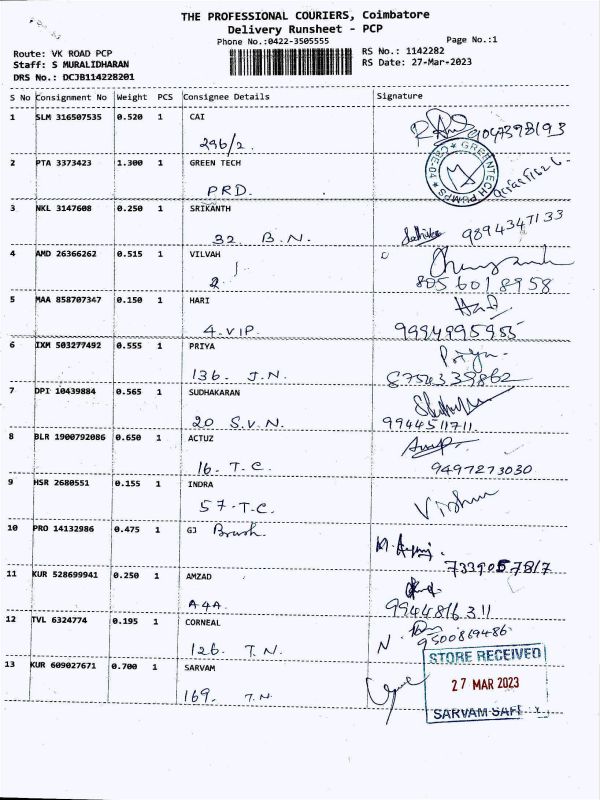 THE PROFESSIONAL COURIERS, Coimbatore
Delivery Runsheet - PCP
Phone No.:0422-3505555
Page No.:1
Route: VK ROAD PCP
Staff: S MURALIDHARAN
DRS No.: DCJB11422B201
RS No.: 1142282
RS Date: 27-Mar-2023
S No Consignment No Weight PCS Consignee Details Signature
1 SLM 316507535 0.520 1 CAI
296/2.
2 PTA 3373423 1.300 1 GREEN TECH
PRD.
GREENTECH PUMPS CBE-04
3 NKL 3147608 0.250 1 SRIKANTH
32. B.N. 9894347133
4 AMD 26366262 0.515 1 VILVAH
2. 8056018958
5 MAA 858707347 0.150 1 HARI
4-VIP. 9994995955
6 IXM 503277492 0.555 1 PRIYA Priya
136. J.N. 8754339862
7 DPI 10439884 0.565 1 SUDHAKARAN
20 S.V.N. 9944511711.
8 BLR 1900792086 0.650 1 ACTUZ
16. T.C. 9497273030
9 HSR 2680551 0.155 1 INDRA
57-T.C.
10 PRO 14132986 0.475 1 GJ Brush.
7339057817
11 KUR 528699941 0.250 1 AMZAD
A4A. 9944816311
12 TVL 6324774 0.195 1 CORNEAL
126. T.N. N. 9500869486.
13 KUR 609027671 0.700 1 SARVAM
169. T.N.
STORE RECEIVED
27 MAR 2023